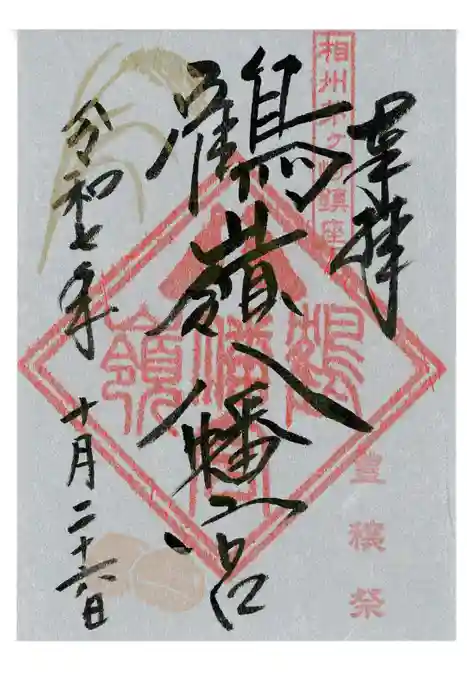 奉拝
相州 鎮座
鶴嶺八幡宮
豊穣祭
令和七年
十月二十六日